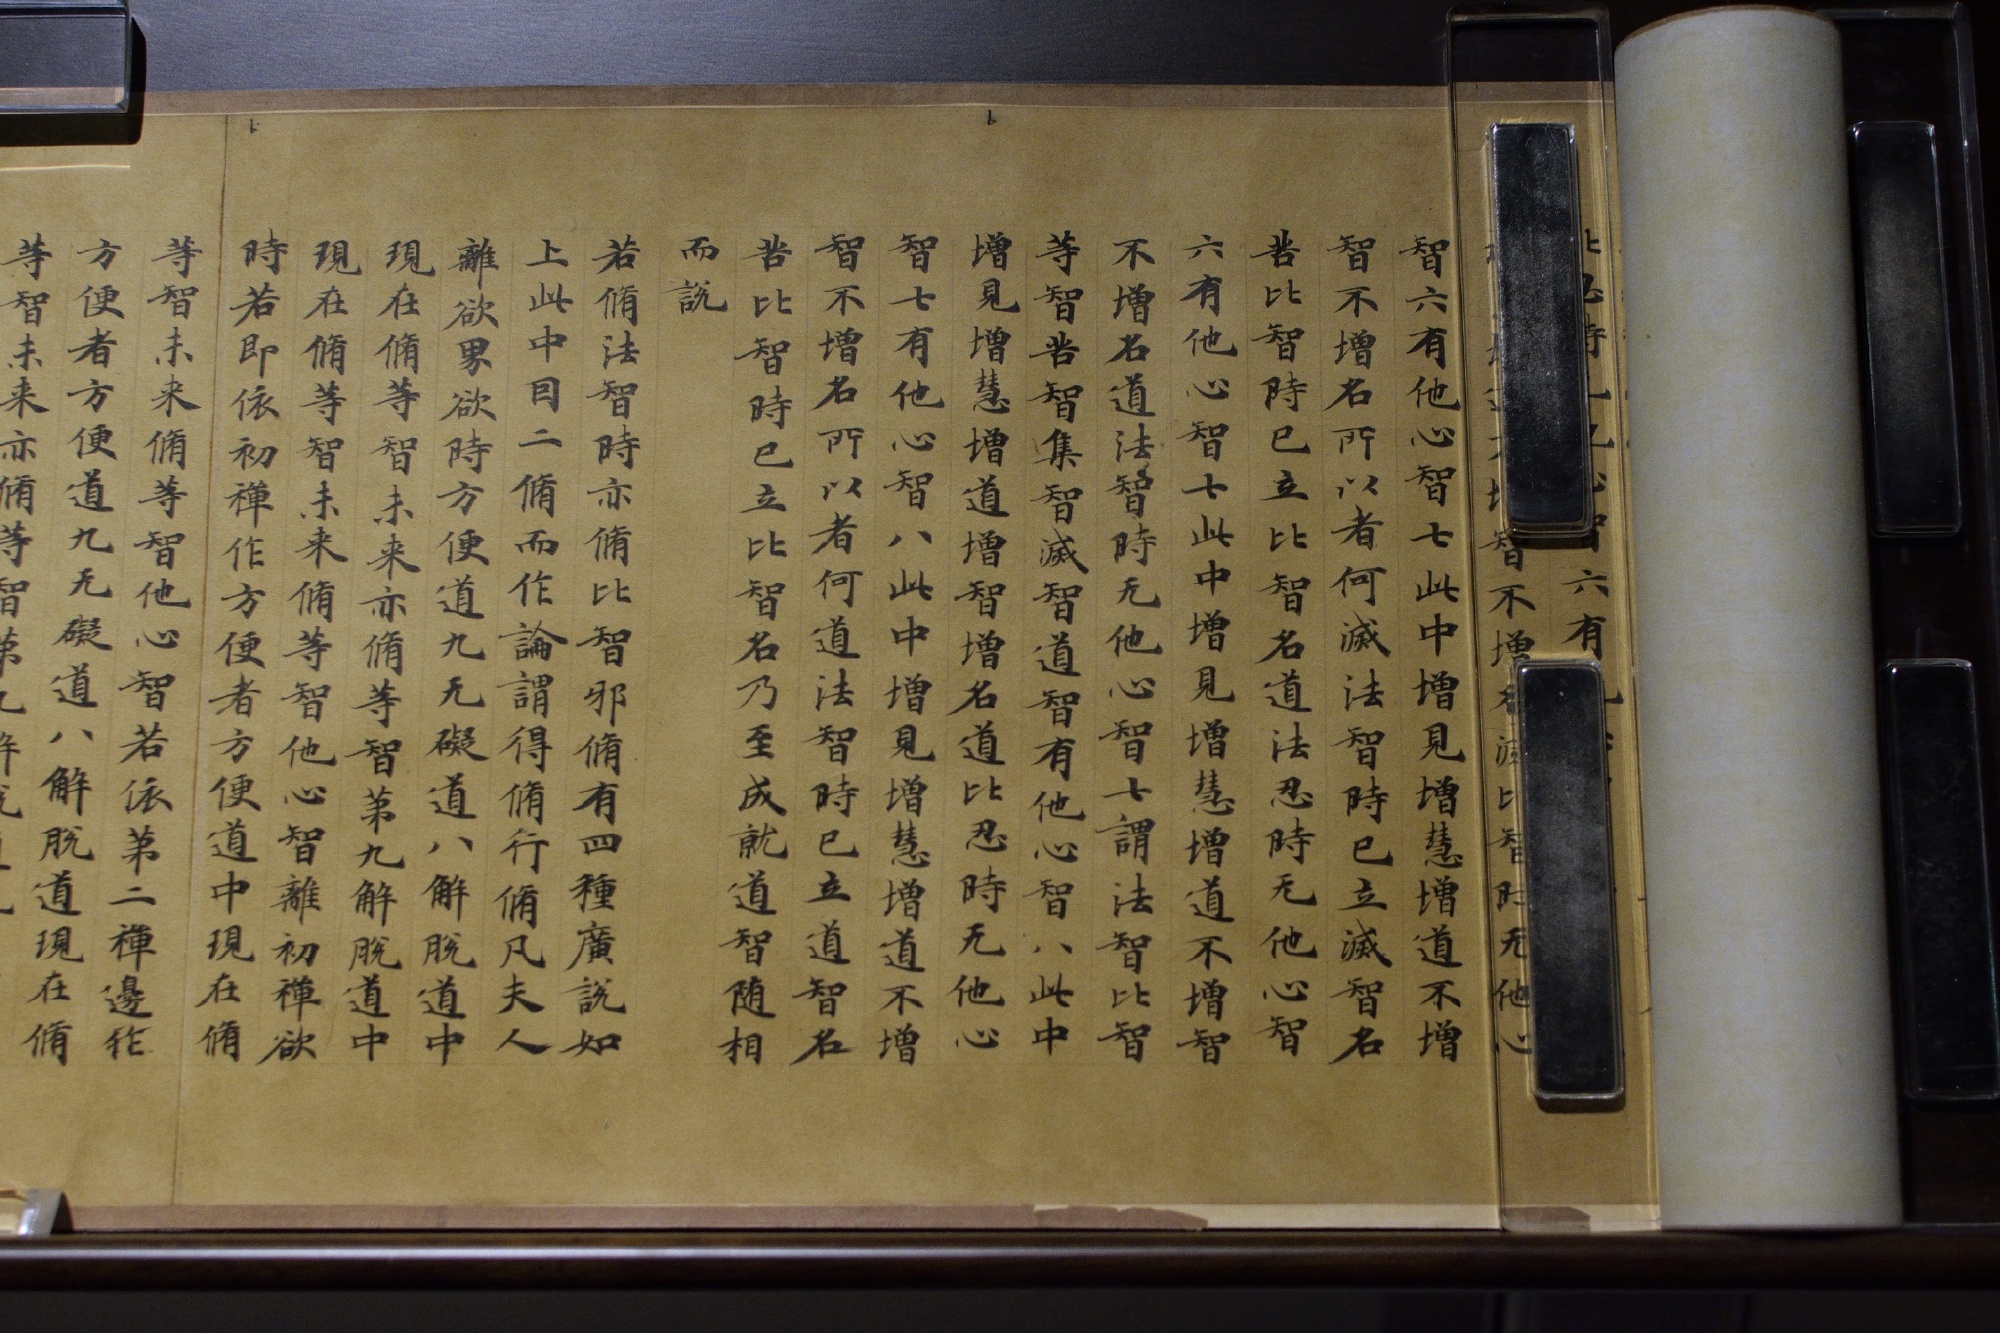 六有
智不增名比智時无他心
智六有他心智七此中增見增慧增道不增
智不增名所以者何滅法智時已立滅智名
苦比智時已立比智名道法忍時无他心智
六有他心智七此中增見增慧增道不增智
不增名道法智時无他心智七謂法智比智
等智苦智集智滅智道智有他心智八此中
增見增慧增道增智增名道比忍時无他心
智七有他心智八此中增見增慧增道不增
智不增名所以者何道法智時已立道智名
苦比智時已立比智名乃至成就道智随相
而說
若脩法智時亦脩比智邪脩有四種廣說如
上此中目二脩而作論謂得脩行脩凡夫人
離欲界欲時方便道九无礙道八解脫道中
現在脩等智未来亦脩等智第九解脫道中
現在脩等智未来脩等智他心智離初禪欲
時若即依初禪作方便者方便道中現在脩
等智未来脩等智他心智若依第二禪邊作
方便者方便道九无礙道八解脫道現在脩
等智未来亦脩等智第九解